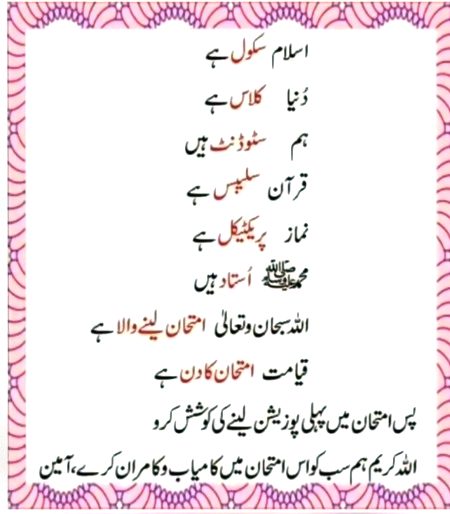 اسلام سکول ہے
دُنیا کلاس ہے
ہم سٹوڈنٹ ہیں
قرآن سلیبس ہے
نماز پریکٹیکل ہے
محمد ﷺ اُستاد ہیں
اللہ سبحان وتعالیٰ امتحان لینے والا ہے
قیامت امتحان کا دن ہے
پس امتحان میں پہلی پوزیشن لینے کی کوشش کرو
اللہ کریم ہم سب کو اس امتحان میں کامیاب و کامران کرے، آمین